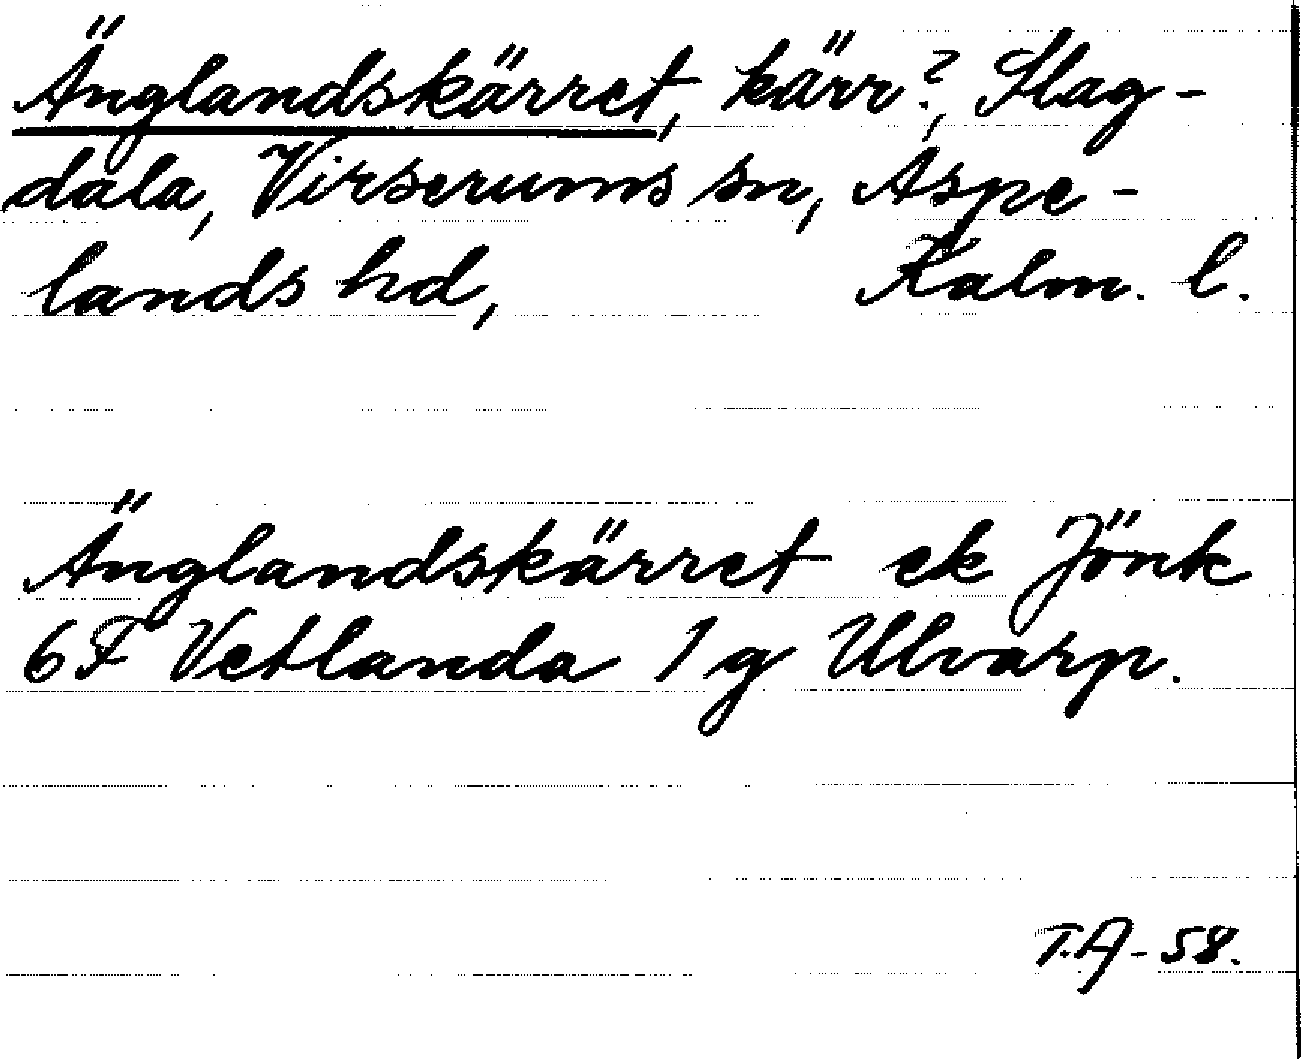 Änglandskärret, kärr?, Slag-
dala, Virserums sn, Aspe-
lands hd, Kalm. l.
Änglandskärret ek Jönk
6F Vetlanda 1g Ulvarp.
T.A-58.